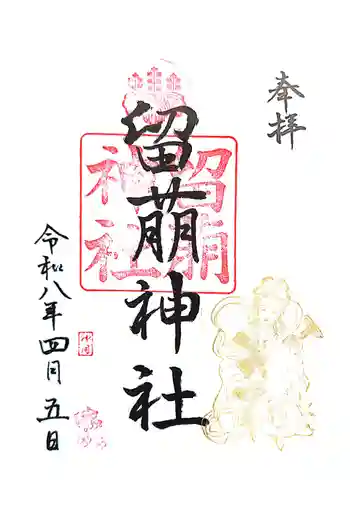 奉拝
留萌神社
留萌
神社
令和八年四月五日